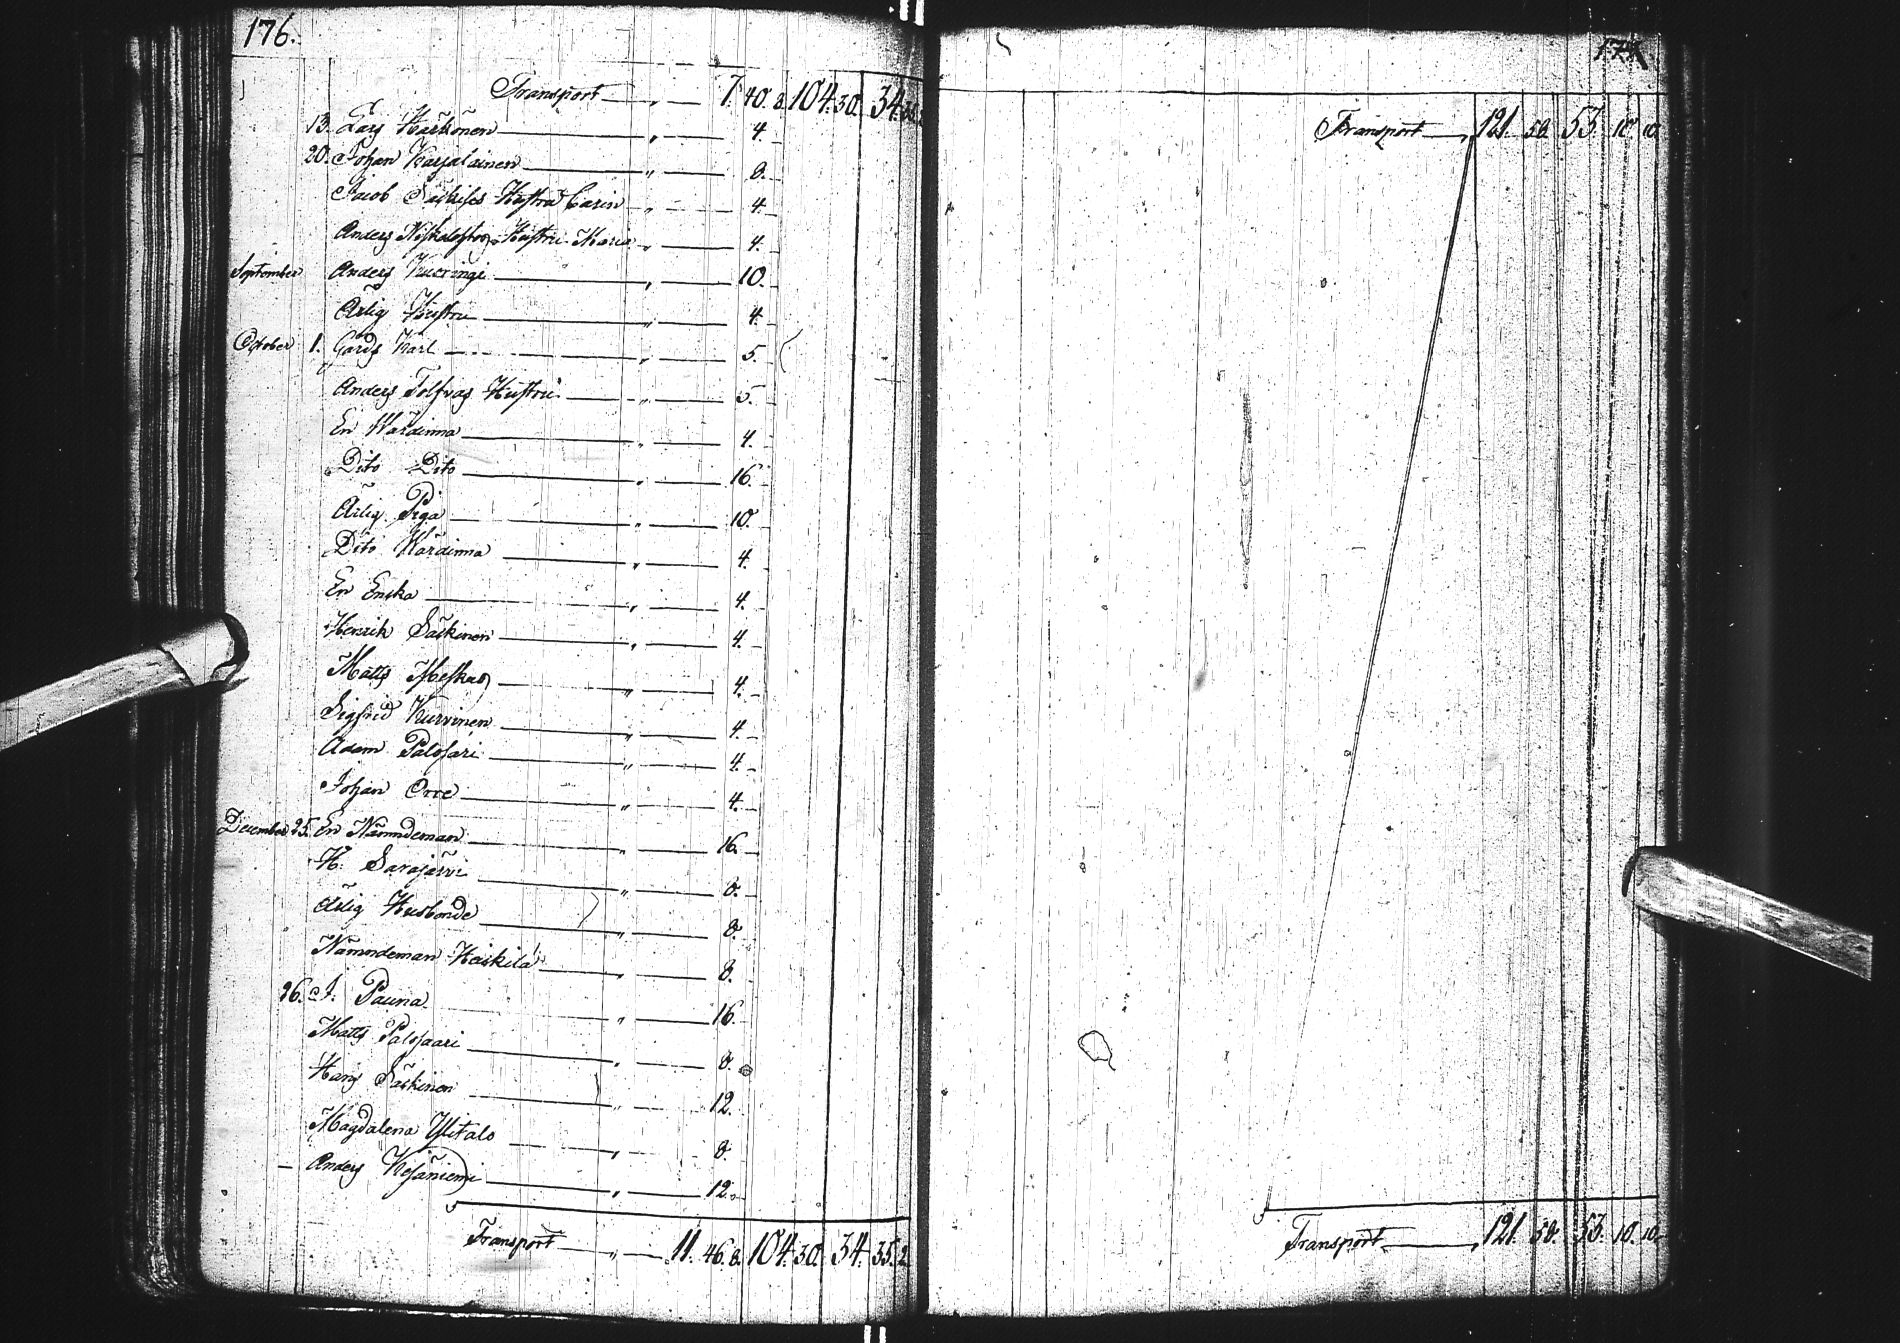 176.
Transport — „ — 7. 40. 8. 104. 30. 34. 35. 2
13. Lars Harkonen — „ — 4.
20. Johan Karjalainen — „ — 8.
Jacob Säkkises Hustru Carin — „ — 4.
Anders Hustru Maria — „ — 4.
September Anders Kueringi — „ — 10.
Ärlig Hustru — „ — 4.
October 1. Gårds Karl — „ — 5.
Anders Tolfvas Hustru — „ — 5.
En Wärdinna — „ — 4.
Dito Dito — „ — 16.
Ärlig Piga — „ — 10.
Dito Wärdinna — „ — 4.
En Encka — „ — 4.
Henrik Säckinen — „ — 4.
Matts — „ — 4.
Sigfrid Kurvinen — „ — 4.
Adam Palosari — „ — 4.
Johan Orre — „ — 4.
December 25. En Nämndeman — „ — 16.
H. Sarajärvi — „ — 8.
Ärlig Husbonde — „ — 8.
Nämndeman Heiskila — „ — 8.
26. J. Pauna — „ — 16.
Matts Palojaari — „ — 8.
Hans Säckinen — „ — 12.
Magdalena Ylitalo — „ — 8.
Anders Kesäniemi — „ — 12.
Transport — „ — 11. 46. 8. 104. 30. 34. 35. 2
Transport — „ 121. 58. 53. 10. 10.
Transport — „ 121. 58. 53. 10. 10.